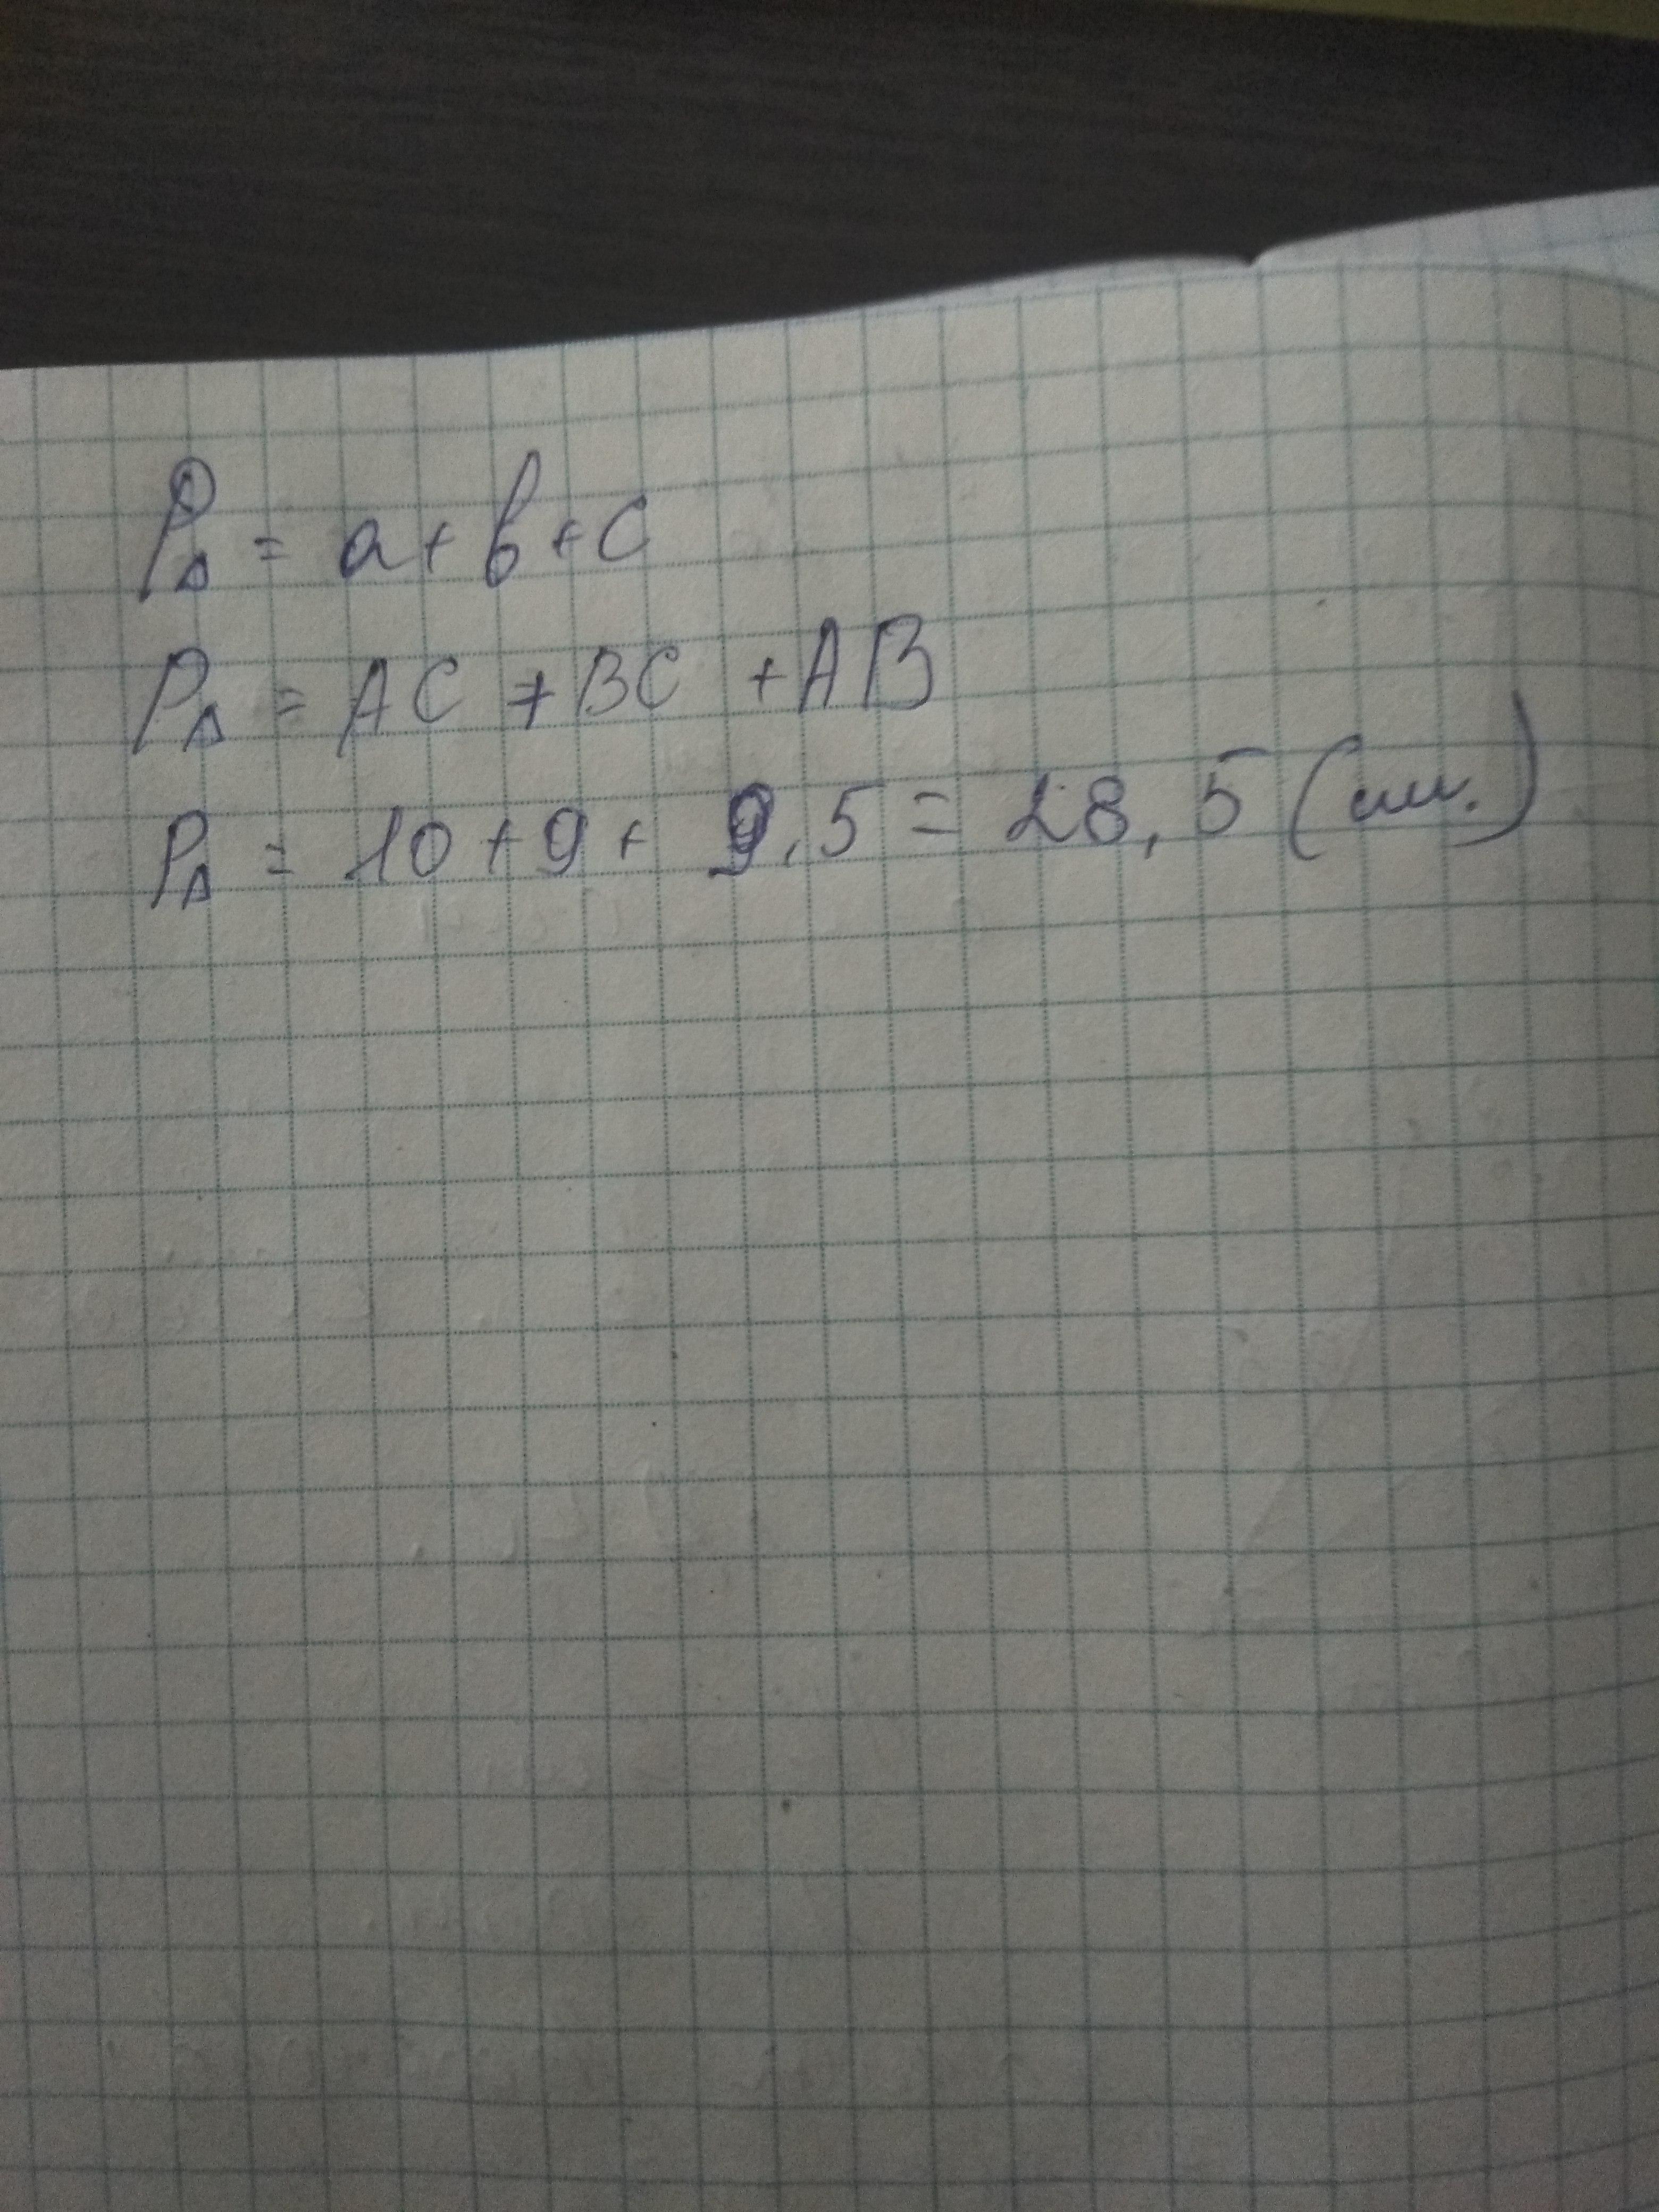 P∆ = a + b + c
P∆ = AC + BC + AB
P∆ = 10 + 9 + 9,5 = 28,5 (см.)